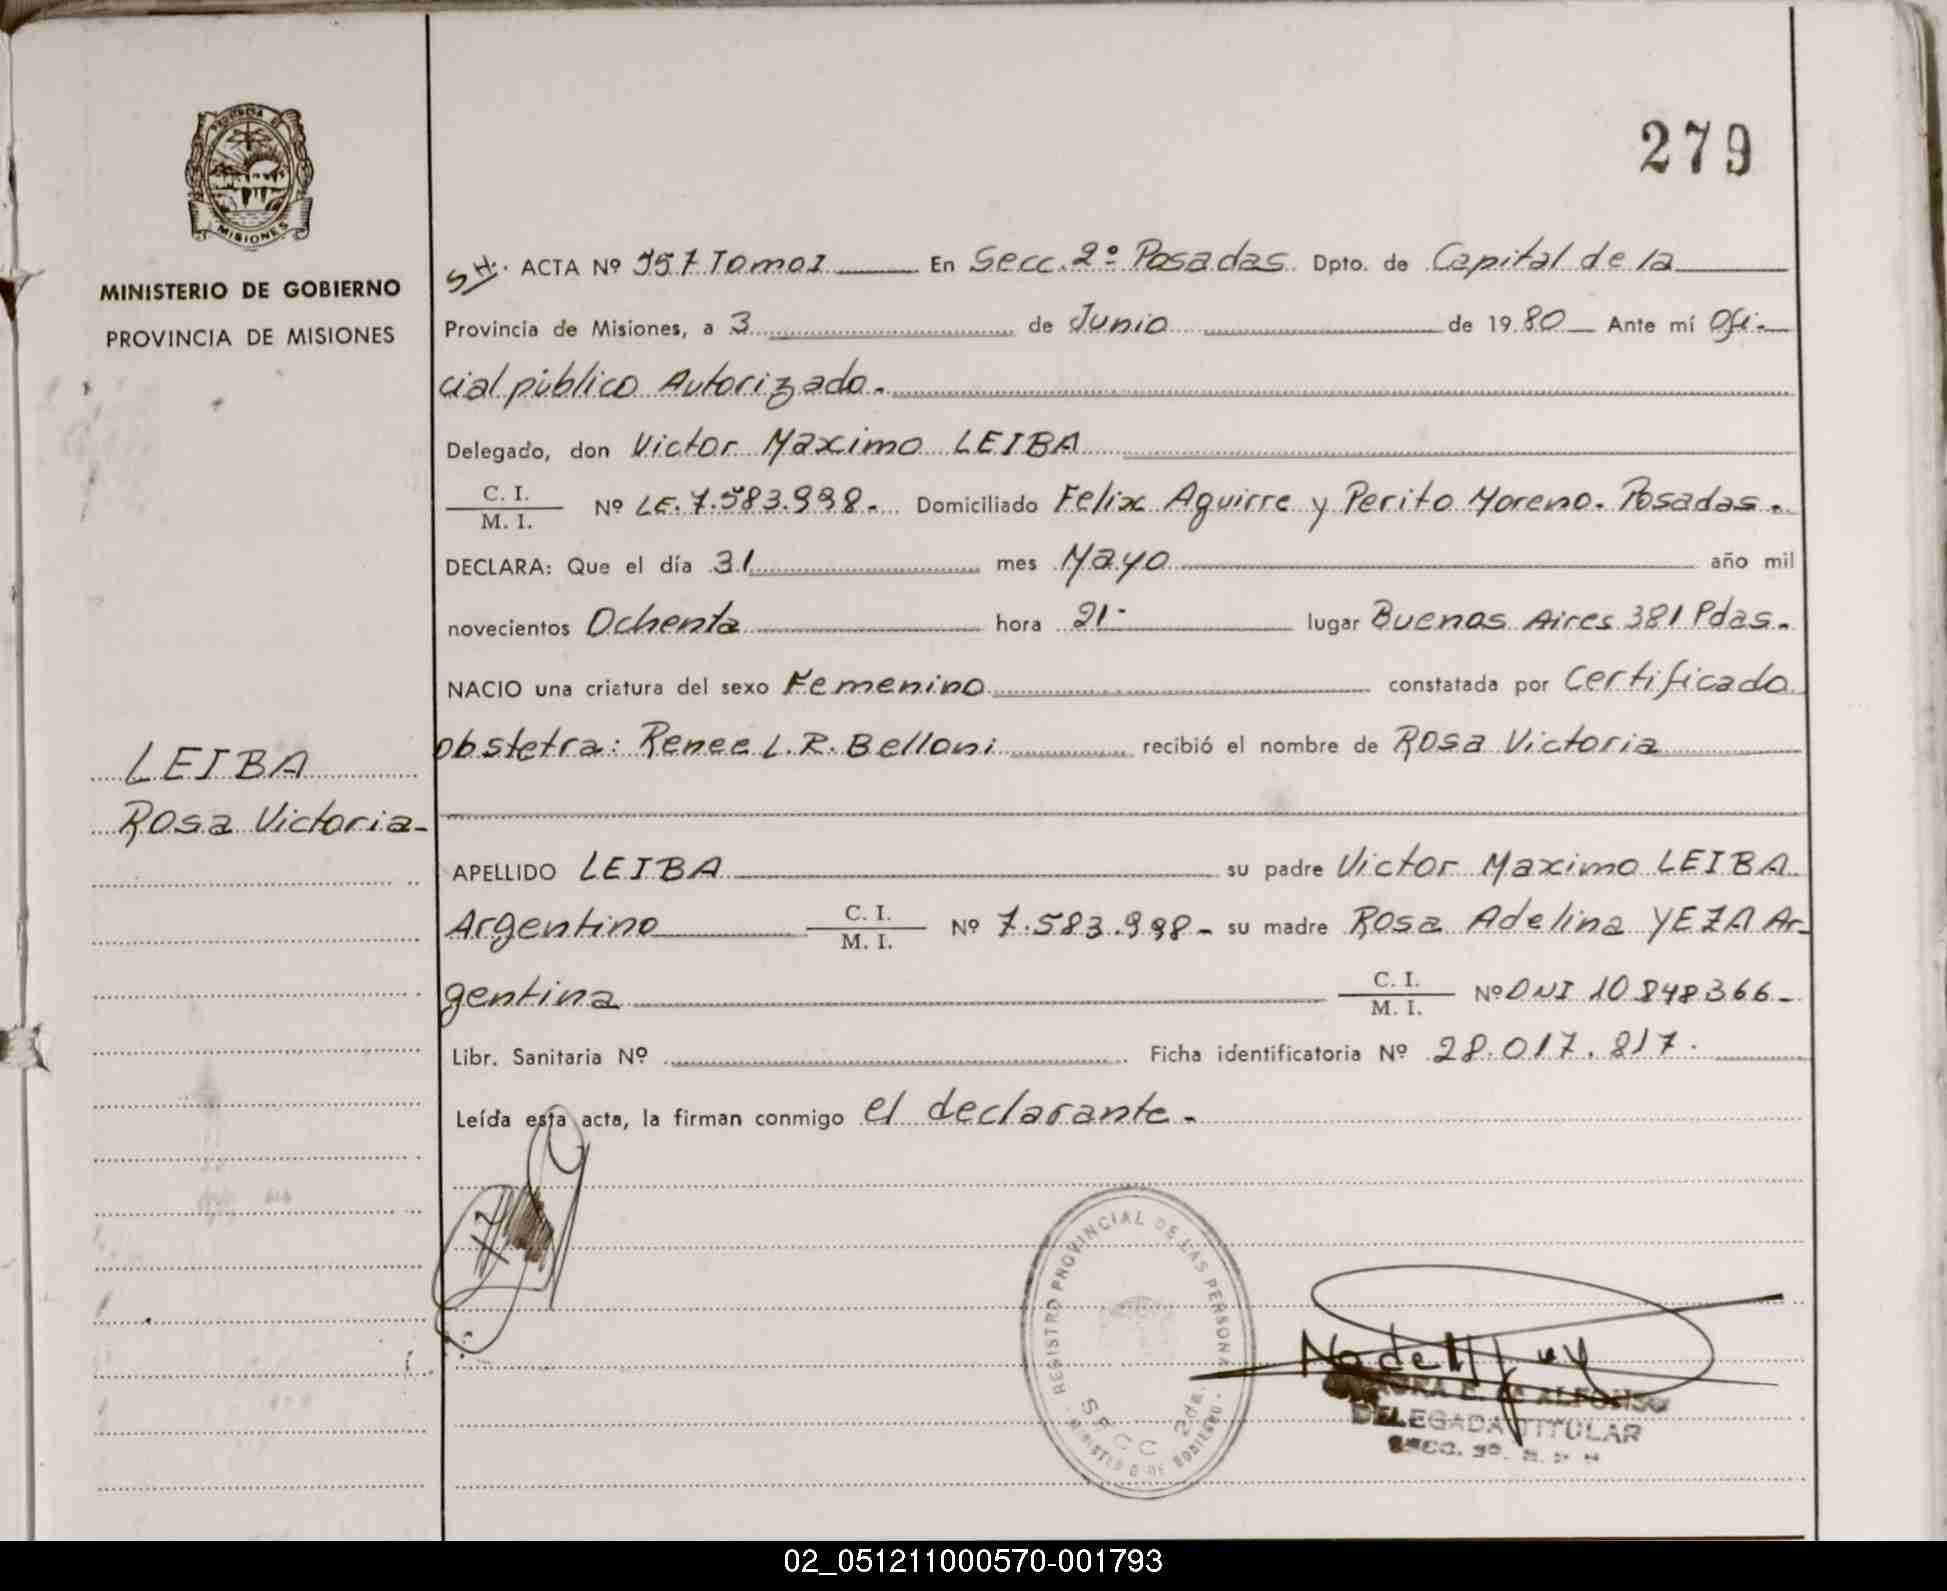 279
PROVINCIA DE
MISIONES
MINISTERIO DE GOBIERNO
PROVINCIA DE MISIONES
SH. ACTA Nº 557 Tomo 1 En Secc. 2º Posadas Dpto. de Capital de la
Provincia de Misiones, a 3 de Junio de 1980 Ante mí Ofi-
cial público Autorizado.
Delegado, don Victor Maximo LEIBA
C. I.
M. I. Nº LE. 7.583.998.- Domiciliado Felix Aguirre y Perito Moreno. Posadas.
DECLARA: Que el día 31 mes Mayo año mil
novecientos Ochenta hora 21- lugar Buenos Aires 381 Pdas.
NACIO una criatura del sexo Femenino constatada por Certificado
obstetra: Renee L. R. Belloni recibió el nombre de Rosa Victoria
LEIBA
Rosa Victoria-
APELLIDO LEIBA su padre Victor Maximo LEIBA
Argentino C. I.
M. I. Nº 7.583.998- su madre Rosa Adelina YEZA Ar-
gentina C. I.
M. I. Nº DNI 10848366-
Libr. Sanitaria Nº Ficha identificatoria Nº 28.017.817.
Leída esta acta, la firman conmigo el declarante-
REGISTRO PROVINCIAL DE LAS PERSONAS
SECC 2da.
MINISTERIO DE GOBIERNO
E. de ALFONSO
DELEGADA TITULAR
02_051211000570-001793